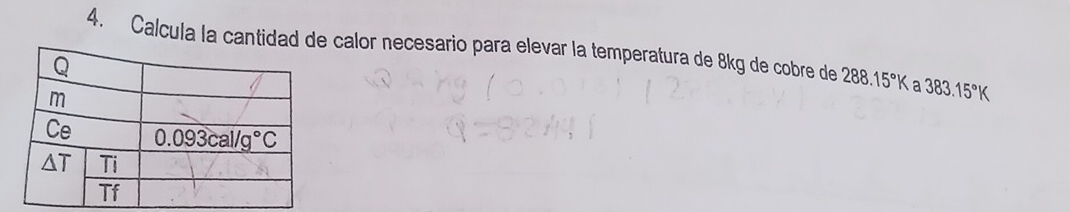 4. Calcula la cantidad de calor necesario para elevar la temperatura de 8kg de cobre de 288.15°K a 383.15°K
Q
m
Ce 0.093cal/g°C
ΔT Ti
Tf